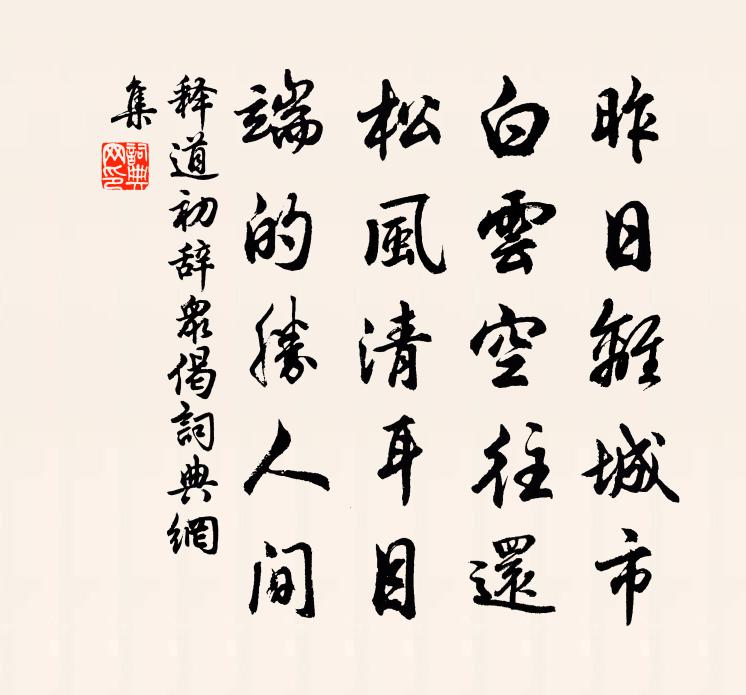 昨日離城市
白雲空往還
松風清耳目
端的勝人间
释道初辞眾偈詞典網
集
詞典
网印